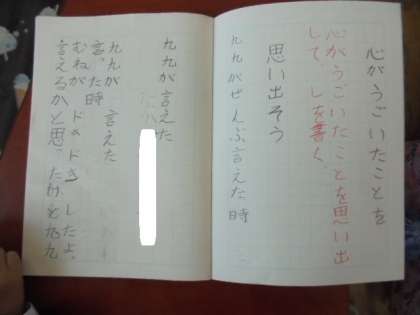 心がうごいたことを
心がうごいたことを思い出
して、しを書く
思い出そう
九九がぜんぶ言えた時
九九が言えた
九九が 言えた
言った時
むねが ドキドキしたよ。
言えるかと思ったけど九九